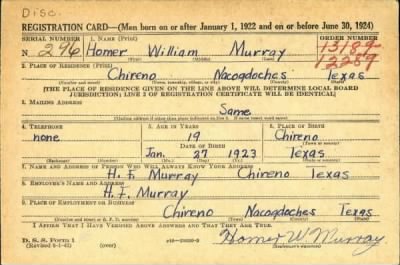 Disc.
REGISTRATION CARD—(Men born on or after January 1, 1922 and on or before June 30, 1924)
SERIAL NUMBER 1. NAME (Print) ORDER NUMBER
N 296 Homer William Murray 13189
12289
2. PLACE OF RESIDENCE (Print)
Chireno Nacogdoches Texas
(Number and street) (Town, township, village, or city) (County) (State)
[THE PLACE OF RESIDENCE GIVEN ON THE LINE ABOVE WILL DETERMINE LOCAL BOARD
JURISDICTION; LINE 2 OF REGISTRATION CERTIFICATE WILL BE IDENTICAL]
3. MAILING ADDRESS
Same
4. TELEPHONE 5. AGE IN YEARS 6. PLACE OF BIRTH
none 19 Chireno
DATE OF BIRTH
Jan. 27 1923 Texas
(Exchange) (Number) (Mo.) (Day) (Yr.) (State or country)
7. NAME AND ADDRESS OF PERSON WHO WILL ALWAYS KNOW YOUR ADDRESS
H. F. Murray Chireno Texas
8. EMPLOYER'S NAME AND ADDRESS
H. F. Murray
9. PLACE OF EMPLOYMENT OR BUSINESS
Chireno Nacogdoches Texas
(Number and street or R. F. D. number) (Town) (County) (State)
I AFFIRM THAT I HAVE VERIFIED ABOVE ANSWERS AND THAT THEY ARE TRUE.
D. S. S. Form 1
Homer W. Murray